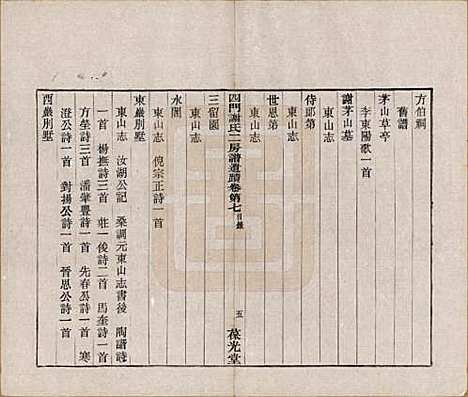 方伯祠
舊譜
茅山草亭
李東陽歌一首
謝茅山墓
東山志
侍郎第
東山志
世恩第
東山志
四門謝氏二房譜遺蹟卷第七目錄
五
葆光堂
三留園
東山志
水閣
東山志 倪宗正詩一首
東巖別墅
東山志 汝湖公記 桑調元東山志書後 陶諧詩
一首 楊撫詩三首 莊一俊詩二首 馬奎詩一首
方塋詩三首 潘肇豐詩一首 先春公詩一首 寒
澄公詩一首 對揚公詩一首 晉恩公詩一首
西巖別墅